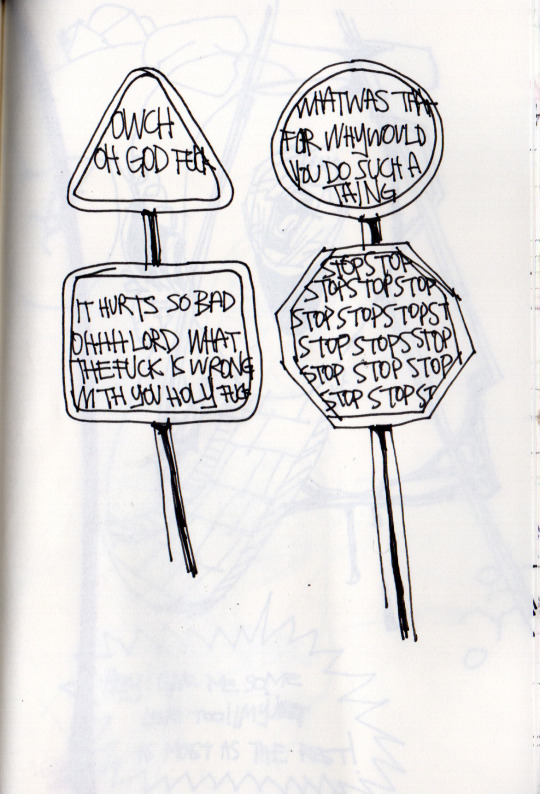 OWCH
OH GOD FUCK
IT HURTS SO BAD
OHHH LORD WHAT
THE FUCK IS WRONG
WITH YOU HOLY FUCK
WHAT WAS THAT
FOR WHY WOULD
YOU DO SUCH A
THING
STOP STOP
STOP STOP STOP
STOP STOP STOP ST
STOP STOPS STOP
STOP STOP STOP
STOP STOP ST
ME SOME
AS THE REST!